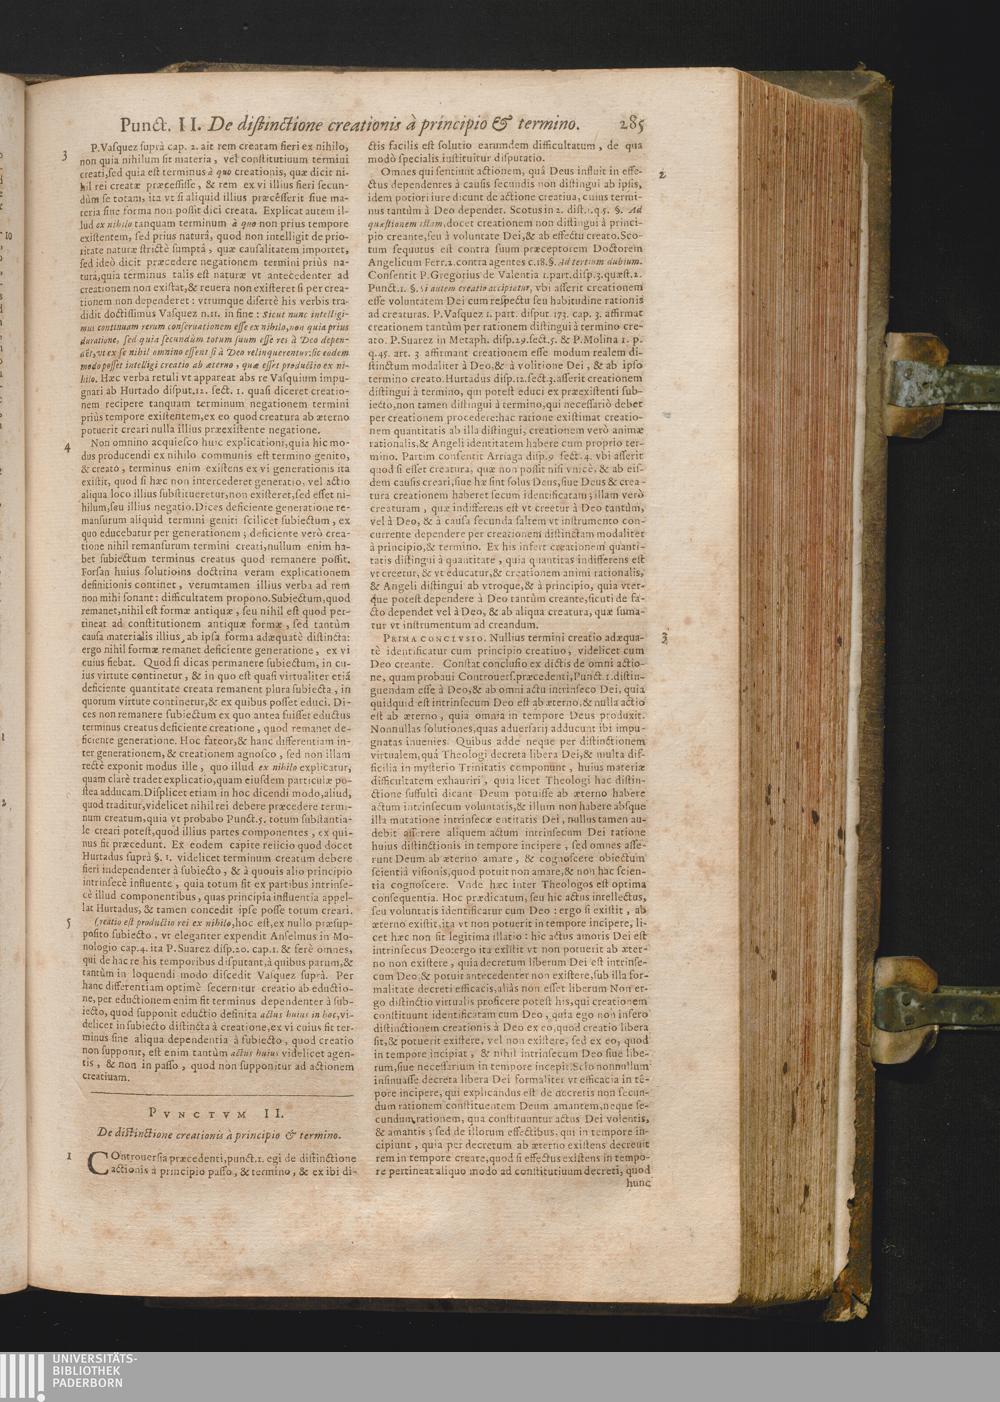 Punct. II. De distinctione creationis à principio & termino. 285
3
P. Vasquez suprà cap. 2. ait rem creatam fieri ex nihilo,
non quia nihilum sit materia, vel constitutiuum termini
creati, sed quia est terminus à quo creationis, quæ dicit ni-
hil rei creatæ præcessisse, & rem ex vi illius fieri secun-
dùm se totam, ita vt si aliquid illius præcesserit siue ma-
teria siue forma non possit dici creata. Explicat autem il-
lud ex nihilo tanquam terminum à quo non prius tempore
existentem, sed prius naturâ, quod non intelligit de prio-
ritate naturæ strictè sumptâ, quæ causalitatem importet,
sed ideò dicit præcedere negationem termini priùs na-
tura, quia terminus talis est naturæ vt antecedenter ad
creationem non existat, & reuera non existeret si per crea-
tionem non dependeret: vtrumque disertè his verbis tra-
didit doctissimus Vasquez n.11. in fine: Sicut nunc intelligi-
mus continuam rerum conseruationem esse ex nihilo, non quia prius
duratione, sed quia secundùm totum suum esse res à Deo depen-
det, vt ex se nihil omnino essent si à Deo relinquerentur: sic eodem
modo posset intelligi creatio ab æterno, quæ esset productio ex ni-
hilo. Hæc verba retuli vt appareat abs re Vasquium impu-
gnari ab Hurtado disput.12. sect. 1. quasi diceret creatio-
nem recipere tanquam terminum negationem termini
priùs tempore existentem, ex eo quod creatura ab æterno
potuerit creari nulla illius præexistente negatione.
4
Non omnino acquiesco huic explicationi, quia hic mo-
dus producendi ex nihilo communis est termino genito,
& creato, terminus enim existens ex vi generationis ita
existit, quod si hæc non intercederet generatio, vel actio
aliqua loco illius substitueretur, non existeret, sed esset ni-
hilum, seu illius negatio. Dices deficiente generatione re-
mansurum aliquid termini geniti scilicet subiectum, ex
quo educebatur per generationem; deficiente verò crea-
tione nihil remansurum termini creati, nullum enim ha-
bet subiectum terminus creatus quod remanere possit.
Forsan huius solutionis doctrina veram explicationem
definitionis continet, verumtamen illius verba ad rem
non mihi sonant: difficultatem propono. Subiectum, quod
remanet, nihil est formæ antiquæ, seu nihil est quod per-
tineat ad constitutionem antiquæ formæ, sed tantùm
causa materialis illius, ab ipsa forma adæquatè distincta:
ergo nihil formæ remanet deficiente generatione, ex vi
cuius fiebat. Quod si dicas permanere subiectum, in cu-
ius virtute continetur, & in quo est quasi virtualiter etiã
deficiente quantitate creata remanent plura subiecta, in
quorum virtute continetur, & ex quibus posset educi. Di-
ces non remanere subiectum ex quo antea fuisset eductus
terminus creatus deficiente creatione, quod remanet de-
ficiente generatione. Hoc fateor, & hanc differentiam in-
ter generationem, & creationem agnosco, sed non illam
rectè exponit modus ille, quo illud ex nihilo explicatur,
quam clarè tradet explicatio, quam eiusdem particulæ po-
stea adducam. Displicet etiam in hoc dicendi modo, aliud,
quod traditur, videlicet nihil rei debere præcedere termi-
num creatum, quia vt probabo Punct.5. totum substantia-
le creari potest, quod illius partes componentes, ex qui-
nus fit præcedunt. Ex eodem capite reiicio quod docet
Hurtadus suprà §. 1. videlicet terminum creatum debere
fieri independenter à subiecto, & à quouis alio principio
intrinsecè influente, quia totum fit ex partibus intrinse-
cè illud componentibus, quas principia influentia appel-
lat Hurtadus, & tamen concedit ipse posse totum creari.
5
Creatio est productio rei ex nihilo, hoc est, ex nullo præsup-
posito subiecto, vt eleganter expendit Anselmus in Mo-
nologio cap.4. ita P. Suarez disp.20. cap.1. & ferè omnes,
qui de hac re his temporibus disputant, à quibus parum, &
tantùm in loquendi modo discedit Vasquez suprà. Per
hanc differentiam optimè secernitur creatio ab eductio-
ne, per eductionem enim fit terminus dependenter à sub-
iecto, quod supponit eductio definita actus huius in hoc, vi-
delicet in subiecto distincta à creatione, ex vi cuius fit ter-
minus sine aliqua dependentia à subiecto, quod creatio
non supponit, est enim tantùm actus huius videlicet agen-
tis, & non in passo, quod non supponitur ad actionem
creatiuam.
PVNCTVM II.
De distinctione creationis à principio & termino.
1
COntrouersia præcedenti, punct.1. egi de distinctione
actionis à principio passo, & termino, & ex ibi di-
ctis facilis est solutio earumdem difficultatum, de qua
modò specialis instituitur disputatio.
2
Omnes qui sentiunt actionem, quâ Deus influit in effe-
ctus dependentes à causis secundis non distingui ab ipsis,
idem potiori iure dicunt de actione creatiua, cuius termi-
nus tantùm à Deo dependet. Scotus in 2. dist.1.q.5. §. Ad
quæstionem istam, docet creationem non distingui à princi-
pio creante, seu à voluntate Dei, & ab effectu creato. Sco-
tum sequutus est contra suum præceptorem Doctorem
Angelicum Ferr. 2. contra agentes c.18.§. Ad tertium dubium.
Consentit P. Gregorius de Valentia 1.part.disp.3.quæst.2.
Punct.1. §. Si autem creatio accipiatur, vbi asserit creationem
esse voluntatem Dei cum respectu seu habitudine rationis
ad creaturas. P. Vasquez 1. part. disput 173. cap. 3. affirmat
creationem tantùm per rationem distingui à termino cre-
ato. P. Suarez in Metaph. disp.29.sect.5. & P. Molina 1. p.
q.45. art. 3 affirmant creationem esse modum realem di-
stinctum modaliter à Deo, & à volitione Dei, & ab ipso
termino creato. Hurtadus disp.12.sect.3. asserit creationem
distingui à termino, qui potest educi ex præexistenti sub-
iecto, non tamen distingui à termino, qui necessariò debet
per creationem procedere: hac ratione existimat creatio-
nem quantitatis ab illa distingui, creationem verò animæ
rationalis, & Angeli identitatem habere cum proprio ter-
mino. Partim consentit Arriaga disp.9 sect.4. vbi asserit
quod si esset creatura, quæ non possit nisi vnicè, & ab eis-
dem causis creari, siue hæ sint solus Deus, siue Deus & crea-
tura creationem haberet secum identificatam; illam verò
creaturam, quæ indifferens est vt creetur à Deo tantùm,
vel à Deo, & à causa secunda saltem vt instrumento con-
currente dependere per creationem distinctam modaliter
à principio, & termino. Ex his infert creationem quanti-
tatis distingui à quantitate, quia quantitas indifferens est
vt creetur, & vt educatur, & creationem animi rationalis,
& Angeli distingui ab vtroque, & à principio, quia vter-
que potest dependere à Deo tantùm creante, sicuti de fa-
cto dependet vel à Deo, & ab aliqua creatura, quæ suma-
tur vt instrumentum ad creandum.
3
PRIMA CONCLVSIO. Nullius termini creatio adæqua-
tè identificatur cum principio creatiuo, videlicet cum
Deo creante. Constat conclusio ex dictis de omni actio-
ne, quam probaui Controuers. præcedenti, Punct.1. distin-
guendam esse à Deo, & ab omni actu intrinseco Dei, quia
quidquid est intrinsecum Deo est ab æterno, & nulla actio
est ab æterno, quia omnia in tempore Deus produxit.
Nonnullas solutiones, quas aduersarij adducunt ibi impu-
gnatas inuenies. Quibus adde neque per distinctionem
virtualem, quâ Theologi decreta libera Dei, & multa dif-
ficilia in mysterio Trinitatis componunt, huius materiæ
difficultatem exhauriri, quia licet Theologi hac distin-
ctione suffulti dicant Deum potuisse ab æterno habere
actum intrinsecum voluntatis, & illum non habere absque
illa mutatione intrinsecæ entitatis Dei, nullus tamen au-
debit asserere aliquem actum intrinsecum Dei ratione
huius distinctionis in tempore incipere, sed omnes asse-
runt Deum ab æterno amare, & cognoscere obiectum
scientiâ visionis, quod potuit non amare, & non hac scien-
tia cognoscere. Vnde hæc inter Theologos est optima
consequentia. Hoc prædicatum, seu hic actus intellectus,
seu voluntatis identificatur cum Deo: ergo si existit, ab
æterno existit, ita vt non potuerit in tempore incipere, li-
cet hæc non sit legitima illatio: hic actus amoris Dei est
intrinsecus Deo: ergo ita existit vt non potuerit ab æter-
no non existere, quia decretum liberum Dei est intrinse-
cum Deo, & potuit antecedenter non existere, sub illa for-
malitate decreti efficacis, aliàs non esset liberum Non er-
go distinctio virtualis proficere potest his, qui creationem
constituunt identificatam cum Deo, quia ego non infero
distinctionem creationis à Deo ex eo, quod creatio libera
sit, & potuerit existere, vel non existere, sed ex eo, quod
in tempore incipiat, & nihil intrinsecum Deo siue libe-
rum, siue necessarium in tempore incepit. Scio nonnullum
insinuasse decreta libera Dei formaliter vt efficacia in tẽ-
pore incipere, qui explicandus est de decretis non secun-
dum rationem constituentem Deum amantem, neque se-
cundum rationem, qua constituuntur actus Dei volentis,
& amantis; sed de illorum effectibus, qui in tempore in-
cipiunt, quia per decretum ab æterno existens decreuit
rem in tempore creare, quod si effectus existens in tempo-
re pertineat aliquo modo ad constitutiuum decreti, quod
hunc
UNIVERSITÄTS-
BIBLIOTHEK
PADERBORN